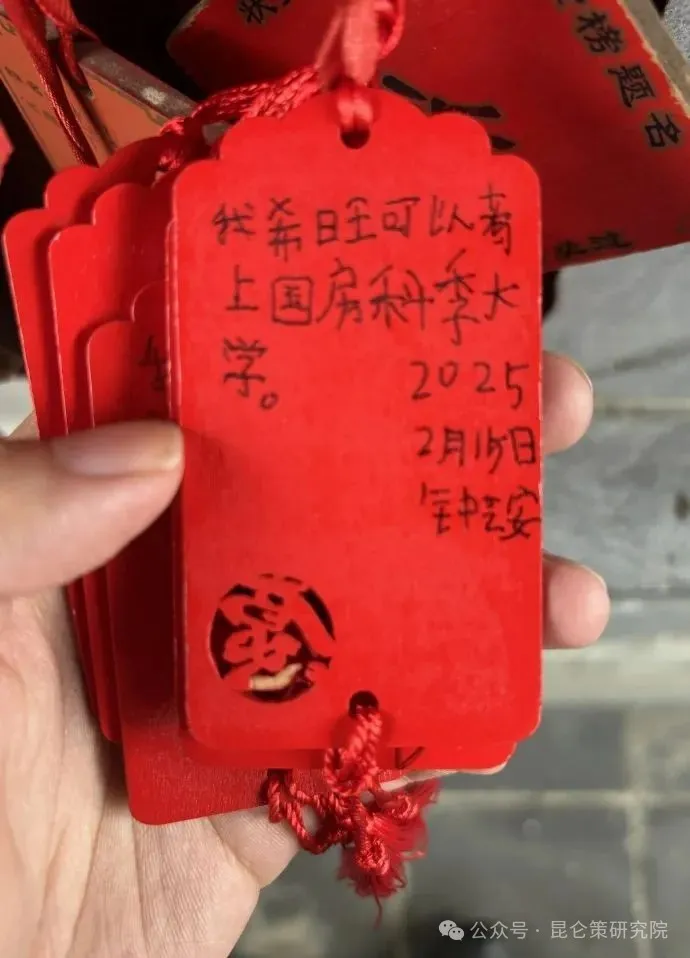 榜题名
我希旺可以考
上国房科季大
学。
2025
2月15日
钟芸安
公众号 · 昆仑策研究院